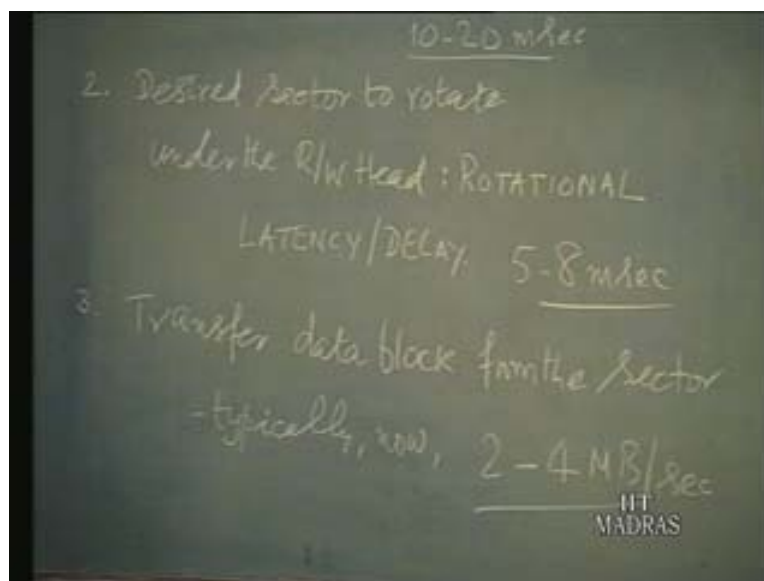 10-20 msec
2. Desired sector to rotate
under the R/W Head : ROTATIONAL
LATENCY/DELAY. 5-8 msec
3. Transfer data block from the sector
- typically, now, 2-4 MB/sec
IIT
MADRAS